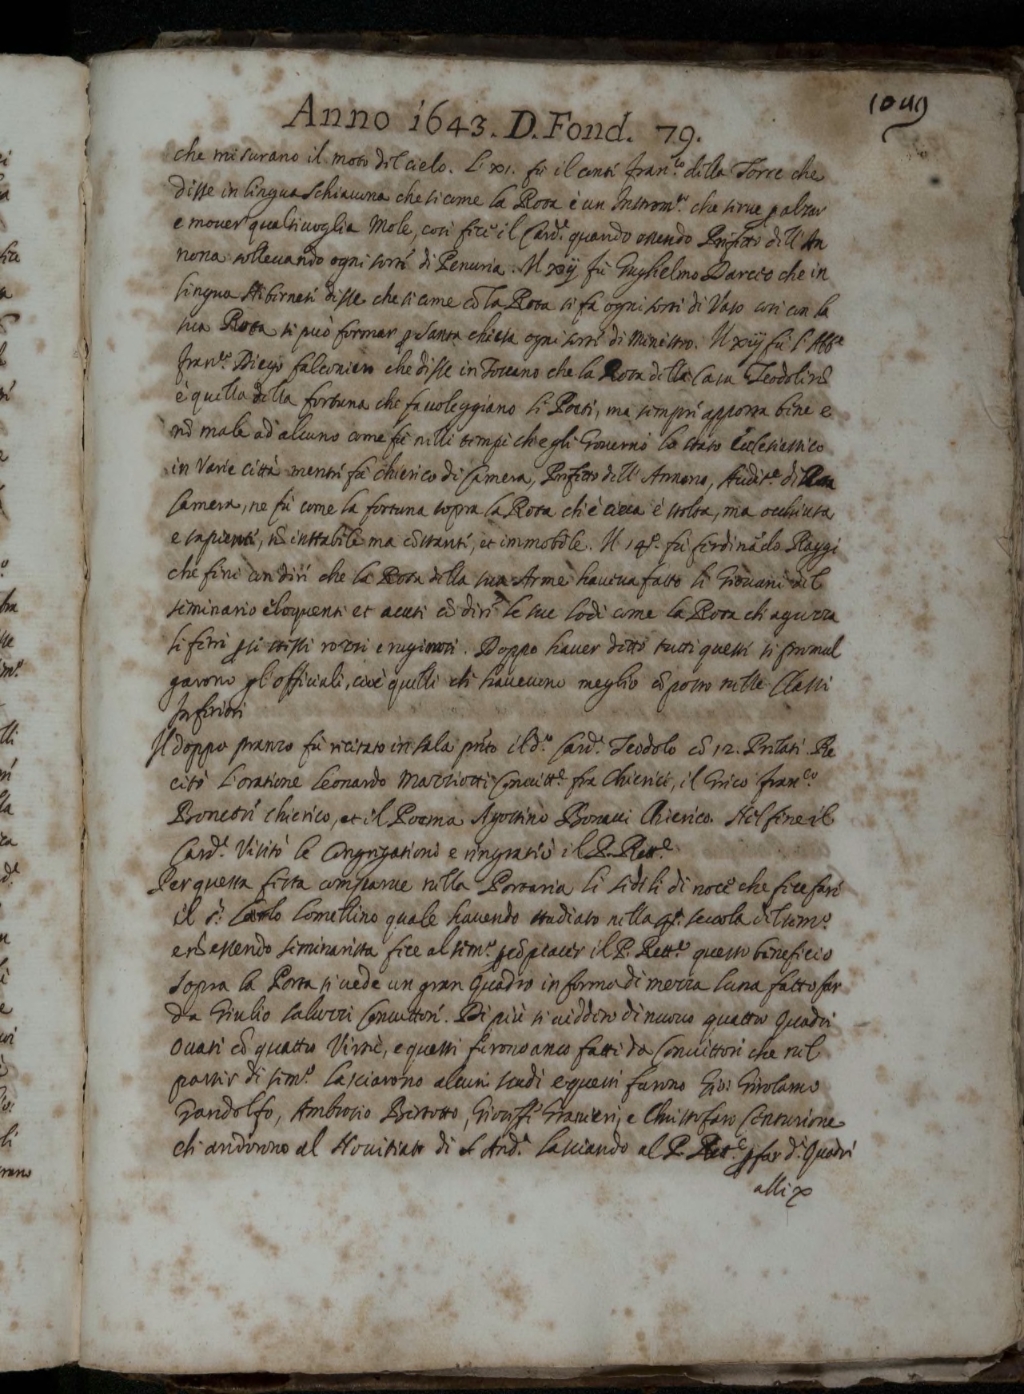 Anno 1643. D. Fond. 79.
che misurano il moto del cielo. L'XI. fù il Conte Fran.co della Torre che
disse in lingua Schiavona che si come la Rota è un Instrom.to che serve p alzar
e mover qualsivoglia Mole, così fece il Card.e quando essendo Prefetto dell'An
nona sollevando ogni sorte di Penuria. Il xij fù Guglielmo Darcio che in
lingua Hibernese disse che si come cõ la Rota si fà ogni sorte di Vaso così con la
sua Rota si può formar p Santa chiesa ogni sorte di Ministro. Il xiij fù l'Abb.e
Fran.co Diego falconieri che disse in Toscano che la Rota della Casa Teodoli nõ
è quella della fortuna che favoleggiano li Poeti, ma sempre apporta bene e
nõ male ad alcuno come fè nelli tempi ch'egli Governò lo stato Ecclesiastico
in Varie città mentre fù chierico di Camera, Prefetto dell'Annona, Audit.e della
Camera, ne fù come la fortuna sopra la Rota ch'è cieca e stolta, ma occhiuta
e sapiente, nõ instabile ma cõstante, et immobile. Il 14.o fù ferdinãdo Raggi
che finì con dire che la Rota della sua Arme haveva fatto li Giovani del
seminario eloquenti et acuti cõ dire le sue lodi come la Rota ch'aguzza
li ferri p se stessi rozzi e ruginosi. Doppo haver detto tutti questi si promul
garono gl'officiali, cioè quelli ch'havevano meglio cõposto nelle Classi
Inferiori
Il doppo pranzo fù recitato in sala pñte il d.o Card.e Teodolo cõ 12. Prelati. Re
citò l'oratione Leonardo Marziotti Convitt.e fra Chierici, il Greco Fran.co
Broncone chierico, et il Poema Agostino Bonatti Chierico. Nel fine il
Card.e Visitò le Congregationi e ringratiò il P. Rett.e
Per questa festa comparve nella Portaria li sedili di noce che fece fare
il S.r Carlo Lomellino quale havendo studiato nella scuola del sem.o
nõ essendo seminarista fece al sem.o il P. Rett.e questo beneficio
sopra la Porta si vede un gran Quadro in forma di mezza luna fatto far
da Giulio Saluzzi Convittore. Di più si viddero di nuovo quattro Quadri
Ovati cõ quattro Virtù, e questi furono anco fatti da Convittori che nel
partir di sem.o lasciarono alcuni scudi e questi furono Gio: Girolamo
Gandolfo, Ambrosio Bertotto, Gioseffe Granieri, e Christofaro Centurione
ch'andorono al Novitiato di S. And.a lasciando al P. Rett.e p far d.i Quadri
alli